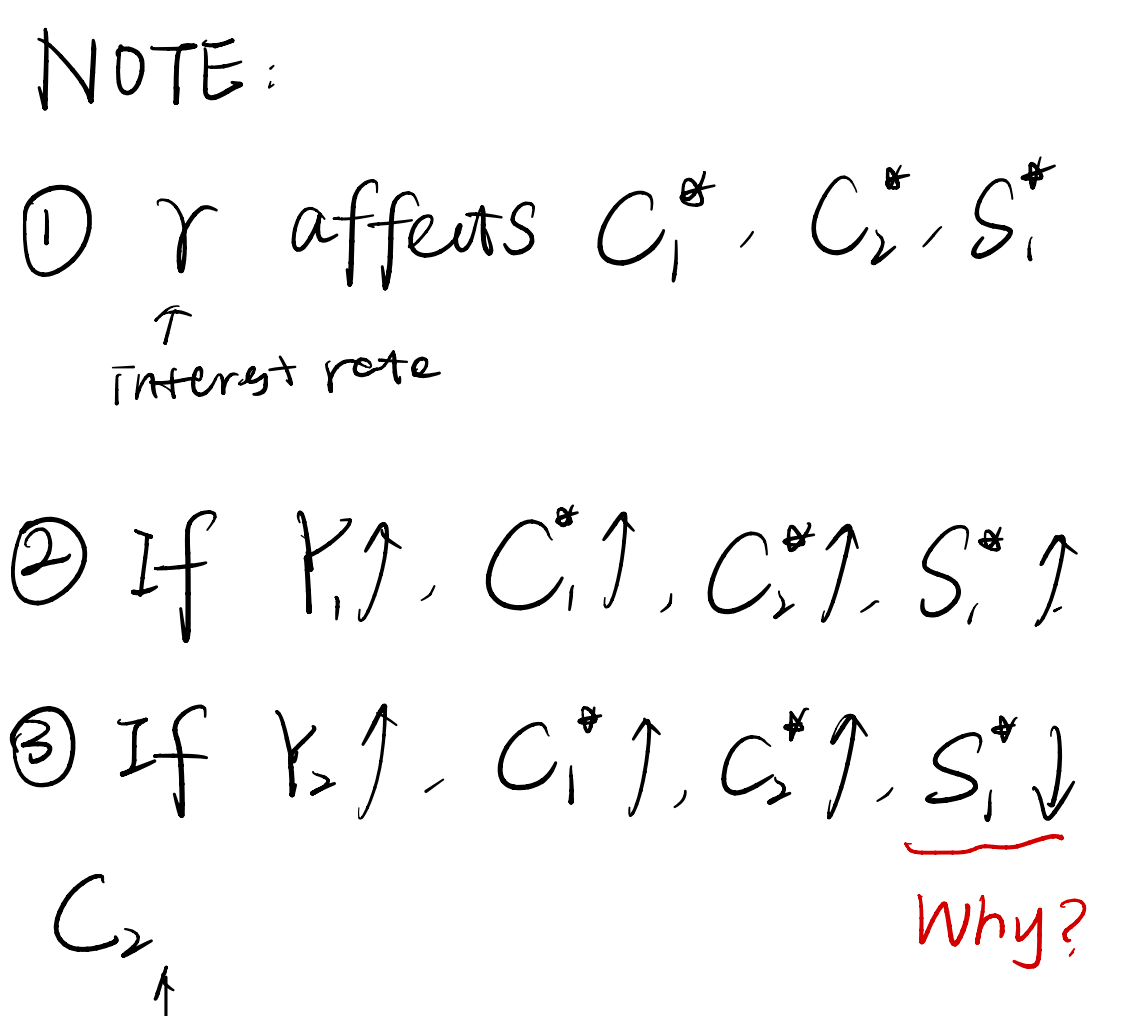 NOTE:
① r affects C₁*, C₂*, S₁*
↑
interest rate
② If Y₁↑, C₁*↑, C₂*↑, S₁*↑
③ If Y₂↑, C₁*↑, C₂*↑, S₁*↓
C₂
Why?
↑